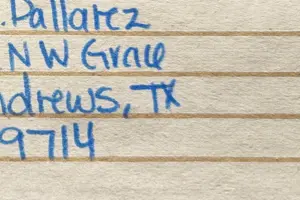 .Pallarez
NW Grace
ndrews, TX
9714